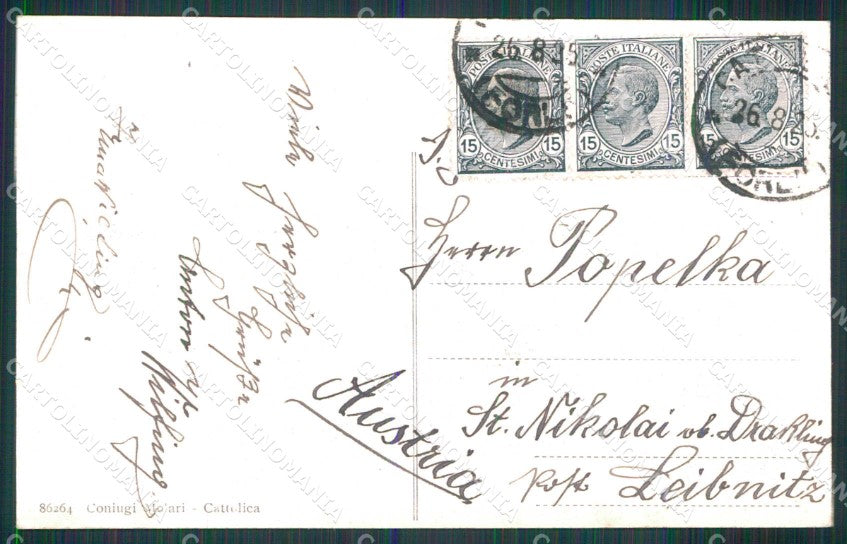 POSTE ITALIANE
15 CENTESIMI 15
POSTE ITALIANE
15 CENTESIMI 15
POSTE ITALIANE
15 CENTESIMI 15
26.8
26.8
Viele herzliche
Grüße
Anton
Herrn Popelka
in
St. Nikolai ob. Draßling
Post Leibnitz
Austria
86264 Coniugi Molari - Cattolica
CARTOLINOMANIA